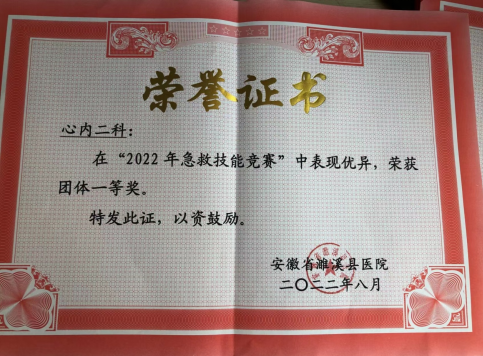 荣誉证书
心内二科：
在“2022年急救技能竞赛”中表现优异，荣获
团体一等奖。
特发此证，以资鼓励。
安徽省濉溪县医院
二〇二二年八月